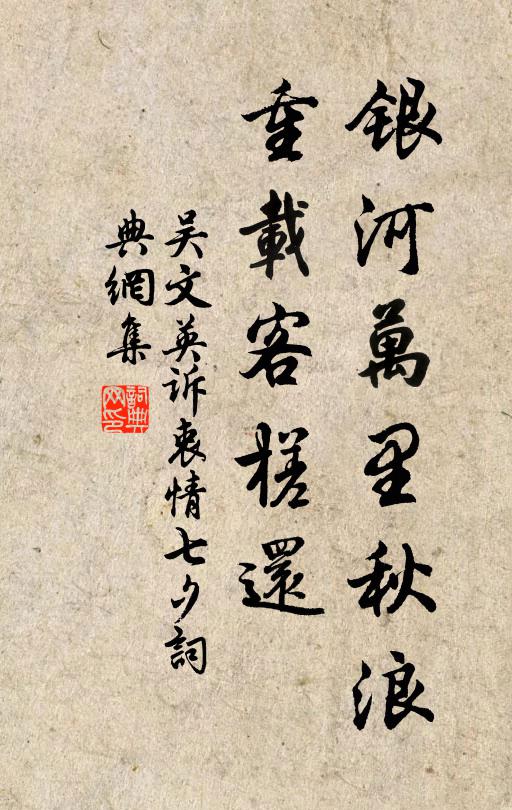 銀河萬里秋浪
重載客槎還
吳文英訴衷情七夕詞
典網集
詞典
网印